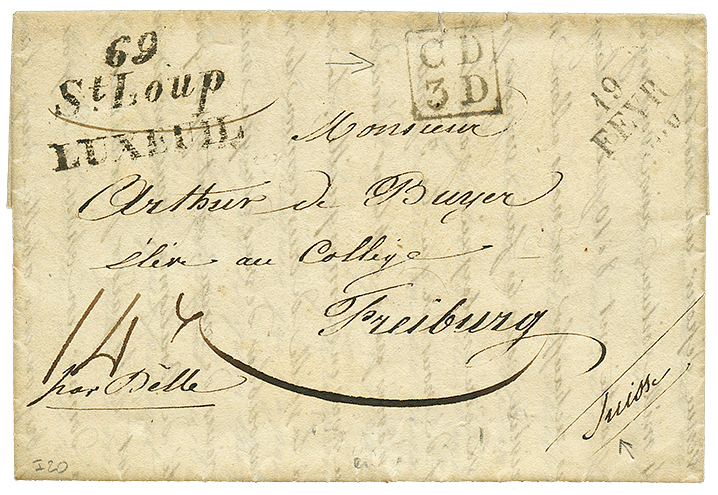 69
St. Loup
LUXEUIL
C D
3 D
19
FEVR
Monsieur
Arthur de Buyer
élève au Collège
Freiburg
14
par Délle
Suisse
I20